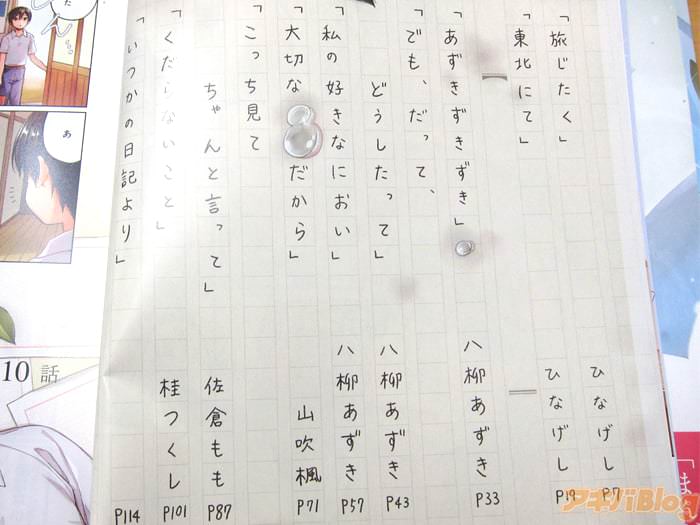 「旅じたく」 ひなげし P7
「東北にて」 ひなげし P19
「あずきずきずき」 八柳あずき P33
「でも、だって、
どうしたって」 八柳あずき P43
「私の好きなにおい」 八柳あずき P57
「大切な だから」 山吹楓 P71
「こっち見て
ちゃんと言って」 佐倉もも P87
「くだらないこと」 桂つくし P101
「いつかの日記より」 P114
た
あ
10話
「ま
アキバBlog